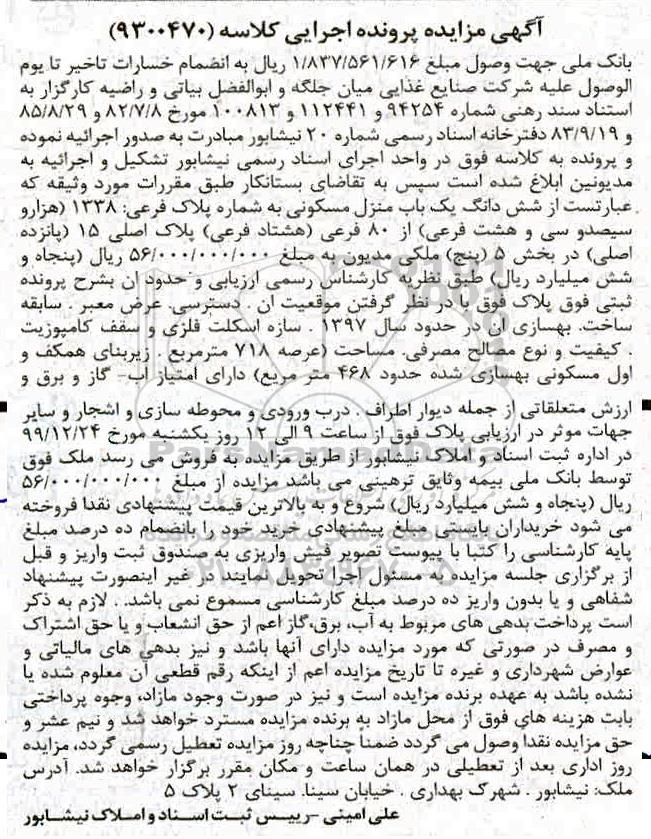 آگهی مزایده پرونده اجرایی کلاسه (۹۳۰۰۴۷۰)
بانک ملی جهت وصول مبلغ ۱/۸۳۷/۵۶۱/۶۱۶ ریال به انضمام خسارات تاخیر تا یوم
الوصول علیه شرکت صنایع غذایی میان جلگه و ابوالفضل بیاتی و راضیه کارگزار به
استناد سند رهنی شماره ۹۴۲۵۴ و ۱۱۲۴۴۱ و ۱۰۰۸۱۳ مورخ ۸۲/۷/۸ و ۸۵/۸/۲۹
و ۸۳/۹/۱۹ دفترخانه اسناد رسمی شماره ۲۰ نیشابور مبادرت به صدور اجرائیه نموده
و پرونده به کلاسه فوق در واحد اجرای اسناد رسمی نیشابور تشکیل و اجرائیه به
مدیونین ابلاغ شده است سپس به تقاضای بستانکار طبق مقررات مورد وثیقه که
عبارتست از شش دانگ یک باب منزل مسکونی به شماره پلاک فرعی: ۱۳۳۸ (هزارو
سیصدو سی و هشت فرعی) از ۸۰ فرعی (هشتاد فرعی) پلاک اصلی ۱۵ (پانزده
اصلی) در بخش ۵ (پنج) ملکی مدیون به مبلغ ۵۶/۰۰۰/۰۰۰/۰۰۰ ریال (پنجاه و
شش میلیارد ریال) طبق نظریه کارشناس رسمی ارزیابی و حدود ان بشرح پرونده
ثبتی فوق پلاک فوق با در نظر گرفتن موقعیت ان . دسترسی. عرض معبر . سابقه
ساخت. بهسازی ان در حدود سال ۱۳۹۷ . سازه اسکلت فلزی و سقف کامپوزیت
. کیفیت و نوع مصالح مصرفی. مساحت (عرصه ۷۱۸ مترمربع . زیربنای همکف و
اول مسکونی بهسازی شده حدود ۴۶۸ متر مربع) دارای امتیاز آب- گاز و برق و
ارزش متعلقاتی از جمله دیوار اطراف . درب ورودی و محوطه سازی و اشجار و سایر
جهات موثر در ارزیابی پلاک فوق از ساعت ۹ الی ۱۲ روز یکشنبه مورخ ۹۹/۱۲/۲۴
در اداره ثبت اسناد و املاک نیشابور از طریق مزایده به فروش می رسد ملک فوق
توسط بانک ملی بیمه وثایق ترهینی می باشد مزایده از مبلغ ۵۶/۰۰۰/۰۰۰/۰۰۰
ریال (پنجاه و شش میلیارد ریال) شروع و به بالاترین قیمت پیشنهادی نقدا فروخته
می شود خریداران بایستی مبلغ پیشنهادی خرید خود را بانضمام ده درصد مبلغ
پایه کارشناسی را کتبا با پیوست تصویر فیش واریزی به صندوق ثبت واریز و قبل
از برگزاری جلسه مزایده به مسئول اجرا تحویل نمایند در غیر اینصورت پیشنهاد
شفاهی و یا بدون واریز ده درصد مبلغ کارشناسی مسموع نمی باشد. . لازم به ذکر
است پرداخت بدهی های مربوط به آب، برق،گاز اعم از حق انشعاب و یا حق اشتراک
و مصرف در صورتی که مورد مزایده دارای آنها باشد و نیز بدهی های مالیاتی و
عوارض شهرداری و غیره تا تاریخ مزایده اعم از اینکه رقم قطعی آن معلوم شده یا
نشده باشد به عهده برنده مزایده است و نیز در صورت وجود مازاد، وجوه پرداختی
بابت هزینه های فوق از محل مازاد به برنده مزایده مسترد خواهد شد و نیم عشر و
حق مزایده نقدا وصول می گردد ضمناً چناچه روز مزایده تعطیل رسمی گردد، مزایده
روز اداری بعد از تعطیلی در همان ساعت و مکان مقرر برگزار خواهد شد. آدرس
ملک: نیشابور . شهرک بهداری . خیابان سینا. سینای ۲ پلاک ۵
علی امینی -رییس ثبت اسناد و املاک نیشابور